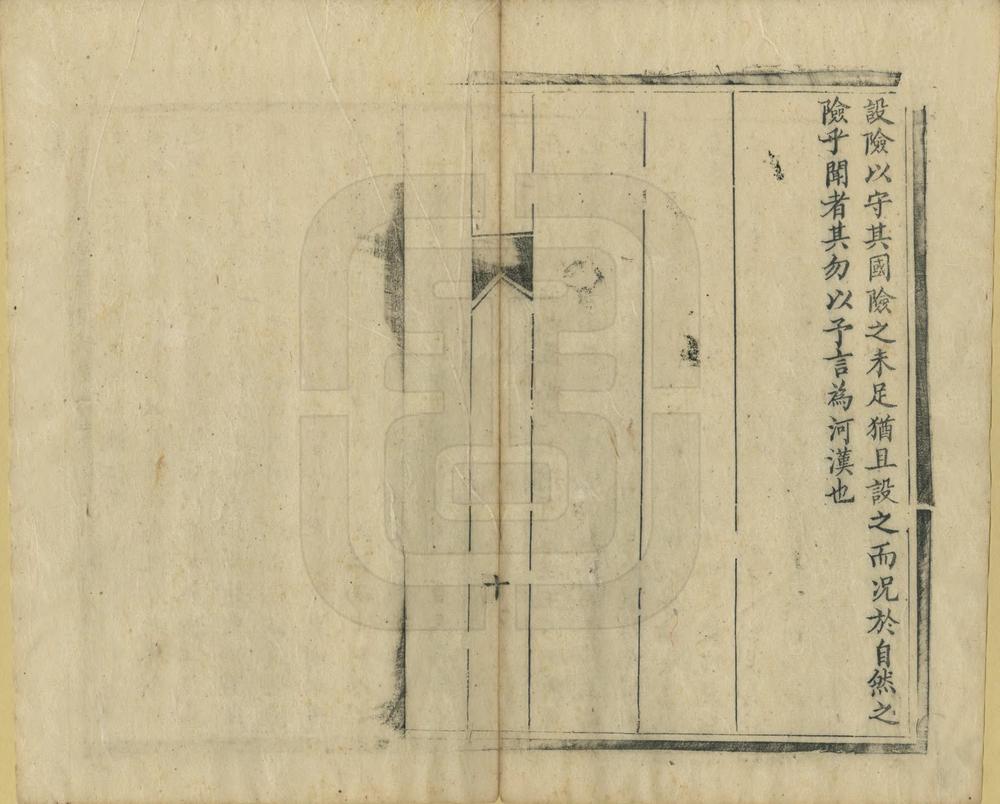 設險以守其國險之未足猶且設之而况於自然之
險乎聞者其勿以予言為河漢也
十